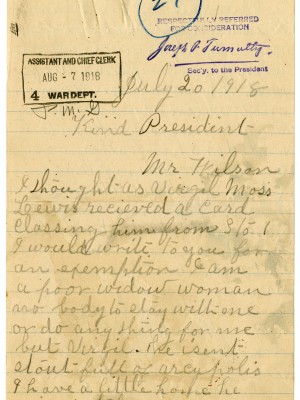 RESPECTFULLY REFERRED
FOR CONSIDERATION
Sec'y. to the President
ASSISTANT AND CHIEF CLERK
AUG - 7 1918
4 WAR DEPT.
July 20 1918
Kind President
Mr Wilson
I thought as Virgil Moss
Lewis recieved a Card
Classing him from 5 to 1
I would write to you for
an exemption I am
a poor widow woman
no body to stay with me
or do any thing for me
but Virgil. He isent
stout full of
I have a little home he